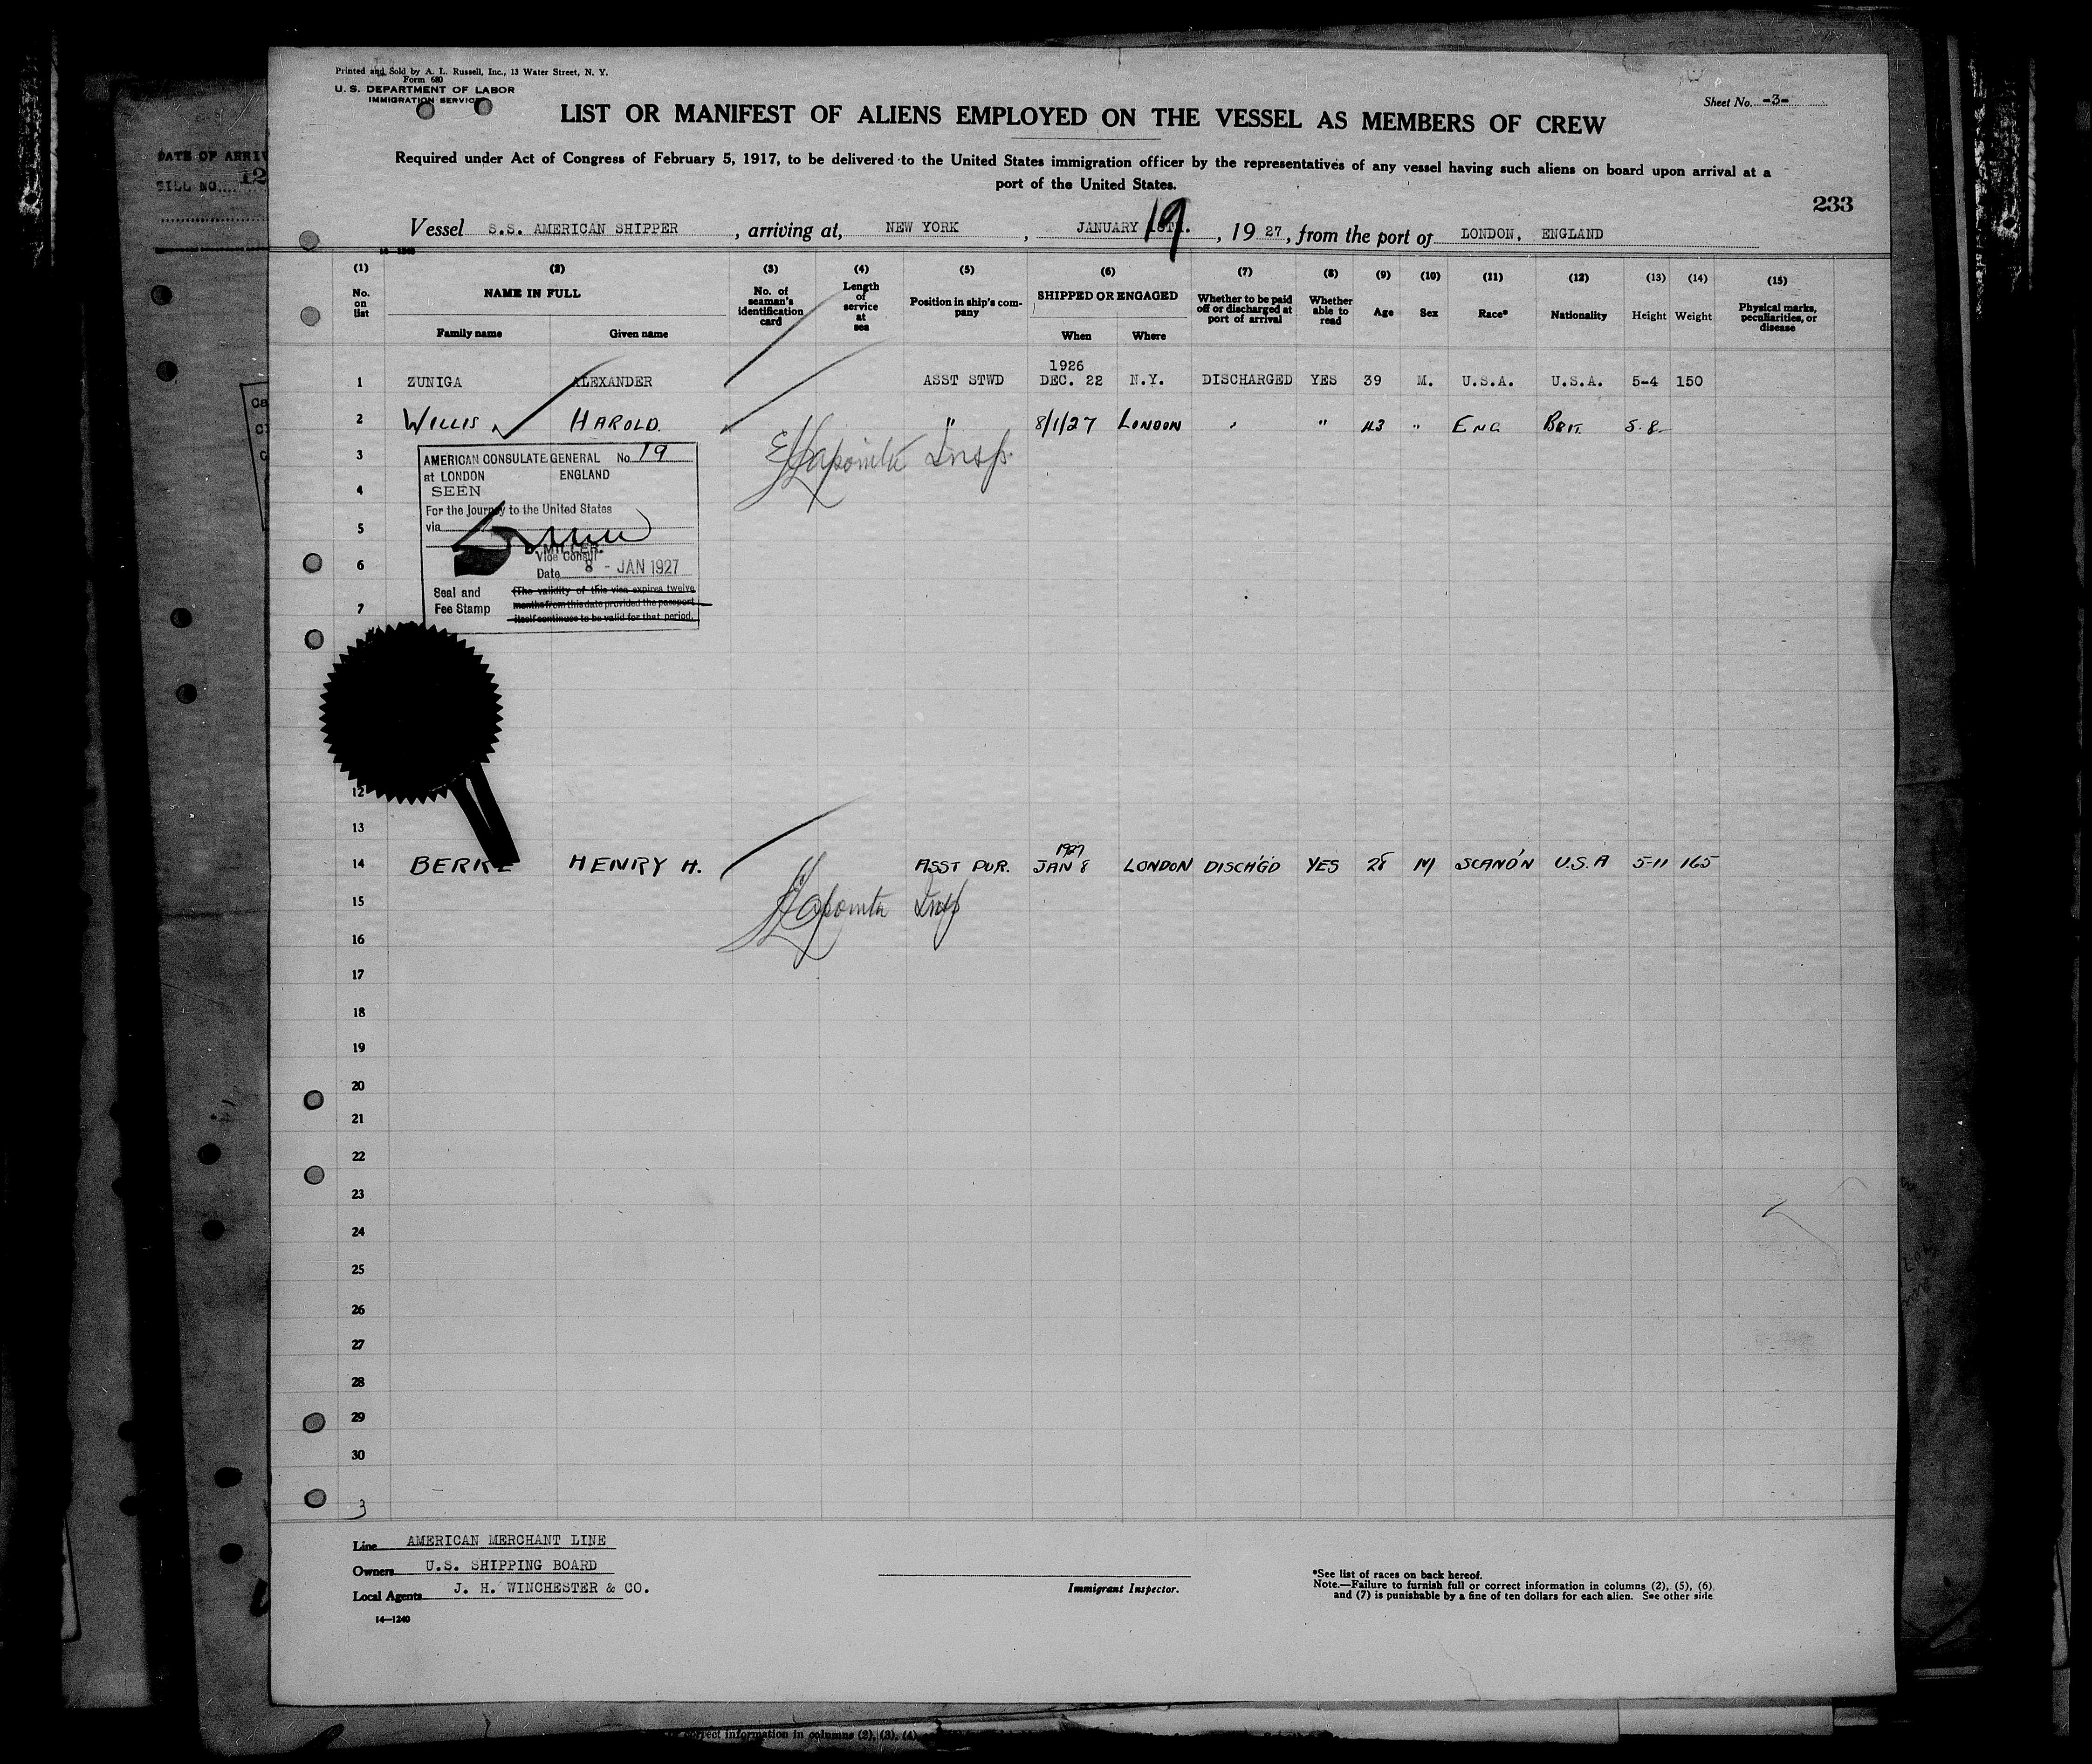 Printed and Sold by A. L. Russell, Inc., 13 Water Street, N. Y.
Form 680
U. S. DEPARTMENT OF LABOR
IMMIGRATION SERVICE
Sheet No. -3-
LIST OR MANIFEST OF ALIENS EMPLOYED ON THE VESSEL AS MEMBERS OF CREW
Required under Act of Congress of February 5, 1917, to be delivered to the United States immigration officer by the representatives of any vessel having such aliens on board upon arrival at a
port of the United States.
DATE OF ARRIV
BILL NO.... 12
233
Vessel S.S. AMERICAN SHIPPER, arriving at, NEW YORK, JANUARY 19, 1927, from the port of LONDON, ENGLAND
(1) (2) (3) (4) (5) (6) (7) (8) (9) (10) (11) (12) (13) (14) (15)
No. on list NAME IN FULL No. of seaman's identification card Length of service at sea Position in ship's company SHIPPED OR ENGAGED Whether to be paid off or discharged at port of arrival Whether able to read Age Sex Race* Nationality Height Weight Physical marks, peculiarities, or disease
Family name Given name When Where
1926
1 ZUNIGA ALEXANDER ASST STWD DEC. 22 N.Y. DISCHARGED YES 39 M. U.S.A. U.S.A. 5-4 150
2 WILLIS HAROLD. " 8/1/27 LONDON " " 43 " ENG BRIT. 5.8-
3
AMERICAN CONSULATE GENERAL No 19
at LONDON ENGLAND
4
SEEN
For the Journey to the United States
5
via
MILLER.
Vice Consul
6
Date 8 - JAN 1927
Seal and Fee Stamp
(The validity of this visa expires twelve
months from this date provided the passport
itself continues to be valid for that period.
7
12
13
1927
14 BERKE HENRY H. ASST PUR. JAN 8 LONDON DISCH'G'D YES 28 M SCAND'N U.S.A 5-11 165
Insp
15
16
17
18
19
20
21
22
23
24
25
26
27
28
29
30
3
Line AMERICAN MERCHANT LINE
Owners U.S. SHIPPING BOARD
Local Agents J. H. WINCHESTER & CO.
14—1240
Immigrant Inspector.
*See list of races on back hereof.
Note.—Failure to furnish full or correct information in columns (2), (5), (6)
and (7) is punishable by a fine of ten dollars for each alien. See other side
correct information in columns (2), (3), (4)